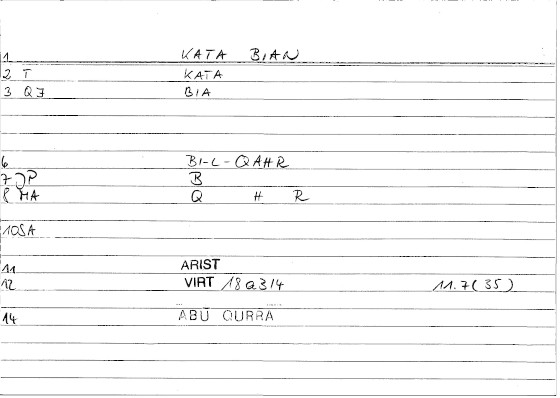 1 KATA BIAN
2 T KATA
3 Q7 BIA
6 BI-L-QAHR
7 JP B
8 MA Q H R
10SA
11 ARIST
12 VIRT 18a3/4 11.7(35)
14 ABŪ QURRA